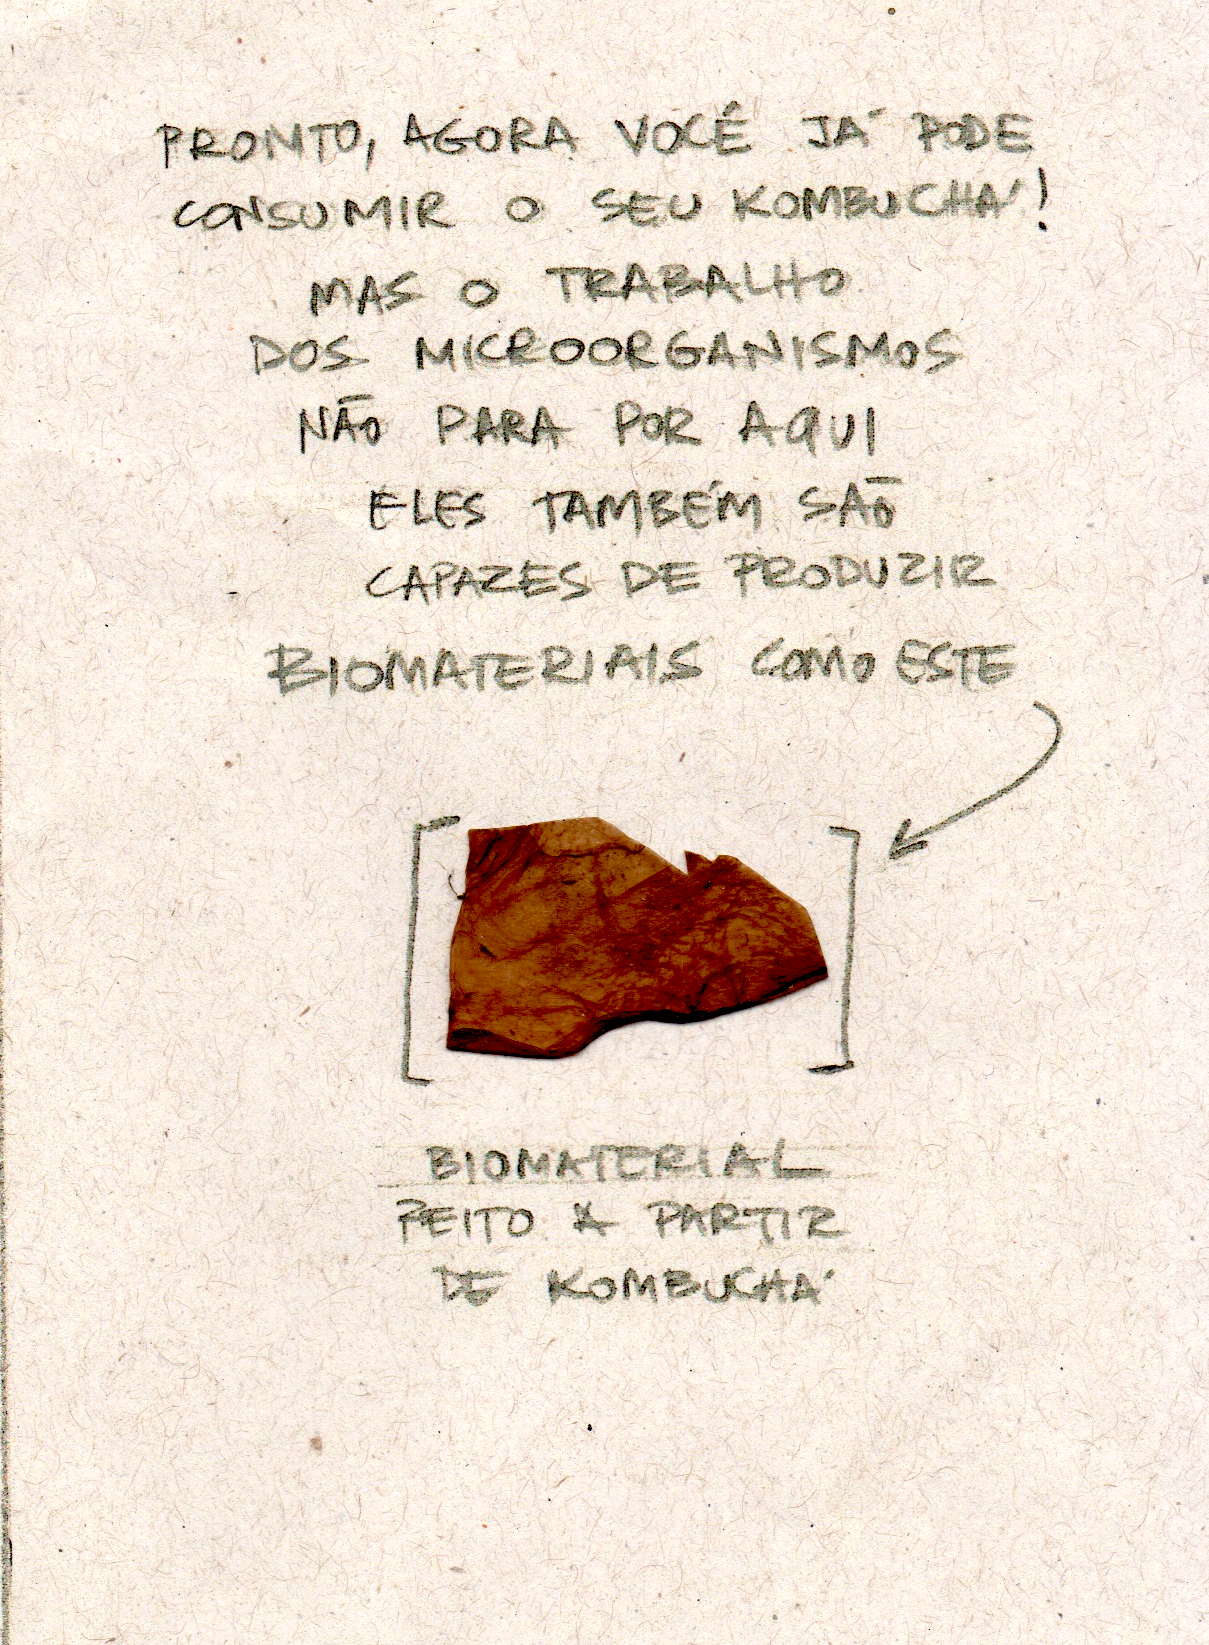 PRONTO, AGORA VOCÊ JÁ PODE
CONSUMIR O SEU KOMBUCHÁ!
MAS O TRABALHO
DOS MICROORGANISMOS
NÃO PARA POR AQUI
ELES TAMBÉM SÃO
CAPAZES DE PRODUZIR
BIOMATERIAIS COMO ESTE
BIOMATERIAL
FEITO A PARTIR
DE KOMBUCHÁ